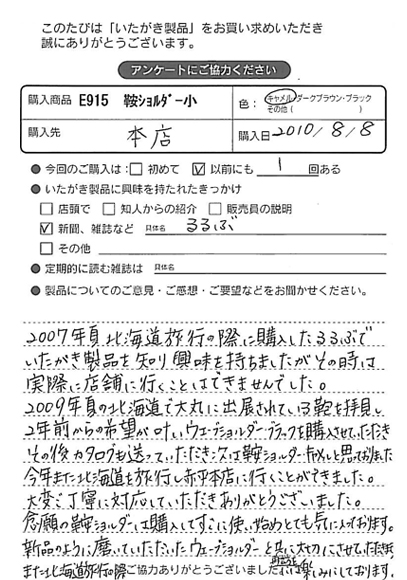 このたびは「いたがき製品」をお買い求めいただき
誠にありがとうございます。
アンケートにご協力ください
購入商品 E915 鞍ショルダー小
色： キャメル・ダークブラウン・ブラック
その他（ ）
購入先 本店
購入日 2010/8/8
● 今回のご購入は：□ 初めて ☑ 以前にも 1 回ある
● いたがき製品に興味を持たれたきっかけ
□ 店頭で □ 知人からの紹介 □ 販売員の説明
☑ 新聞、雑誌など 具体名 るるぶ
□ その他
● 定期的に読む雑誌は 具体名
● 製品についてのご意見・ご感想・ご要望などをお聞かせください。
2007年夏北海道旅行の際に購入したるるぶで
いたがき製品を知り興味を持ちましたがその時は
実際に店舗に行くことはできませんでした。
2009年夏の北海道で大丸に出展されている鞄を拝見し
2年前からの希望が叶いウェーブショルダーブラックを購入させていただき
その後カタログも送っていただき次は鞍ショルダーキャメルと思っておりました
今年また北海道を旅行し赤平本店に行くことができました。
大変ご丁寧に対応していただきありがとうございました。
念願の鞍ショルダーは購入してすぐに使い始めとても気に入っております。
新品のように磨いていただいたウェーブショルダーと共に大切にさせていただきます
また北海道旅行の際 楽しみにしております。
ご協力ありがとうございました